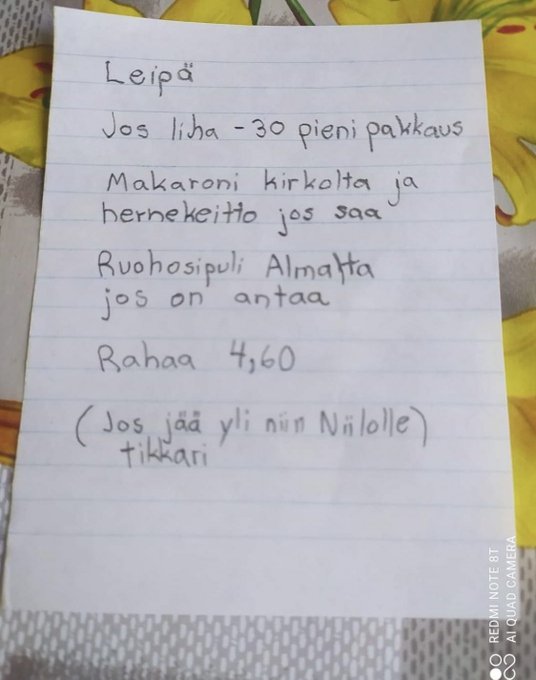 Leipä
Jos liha -30 pieni pakkaus
Makaroni kirkolta ja
hernekeitto jos saa
Ruohosipuli Almalta
jos on antaa
Rahaa 4,60
(Jos jää yli niin Niilolle)
tikkari
REDMI NOTE 8T
AI QUAD CAMERA